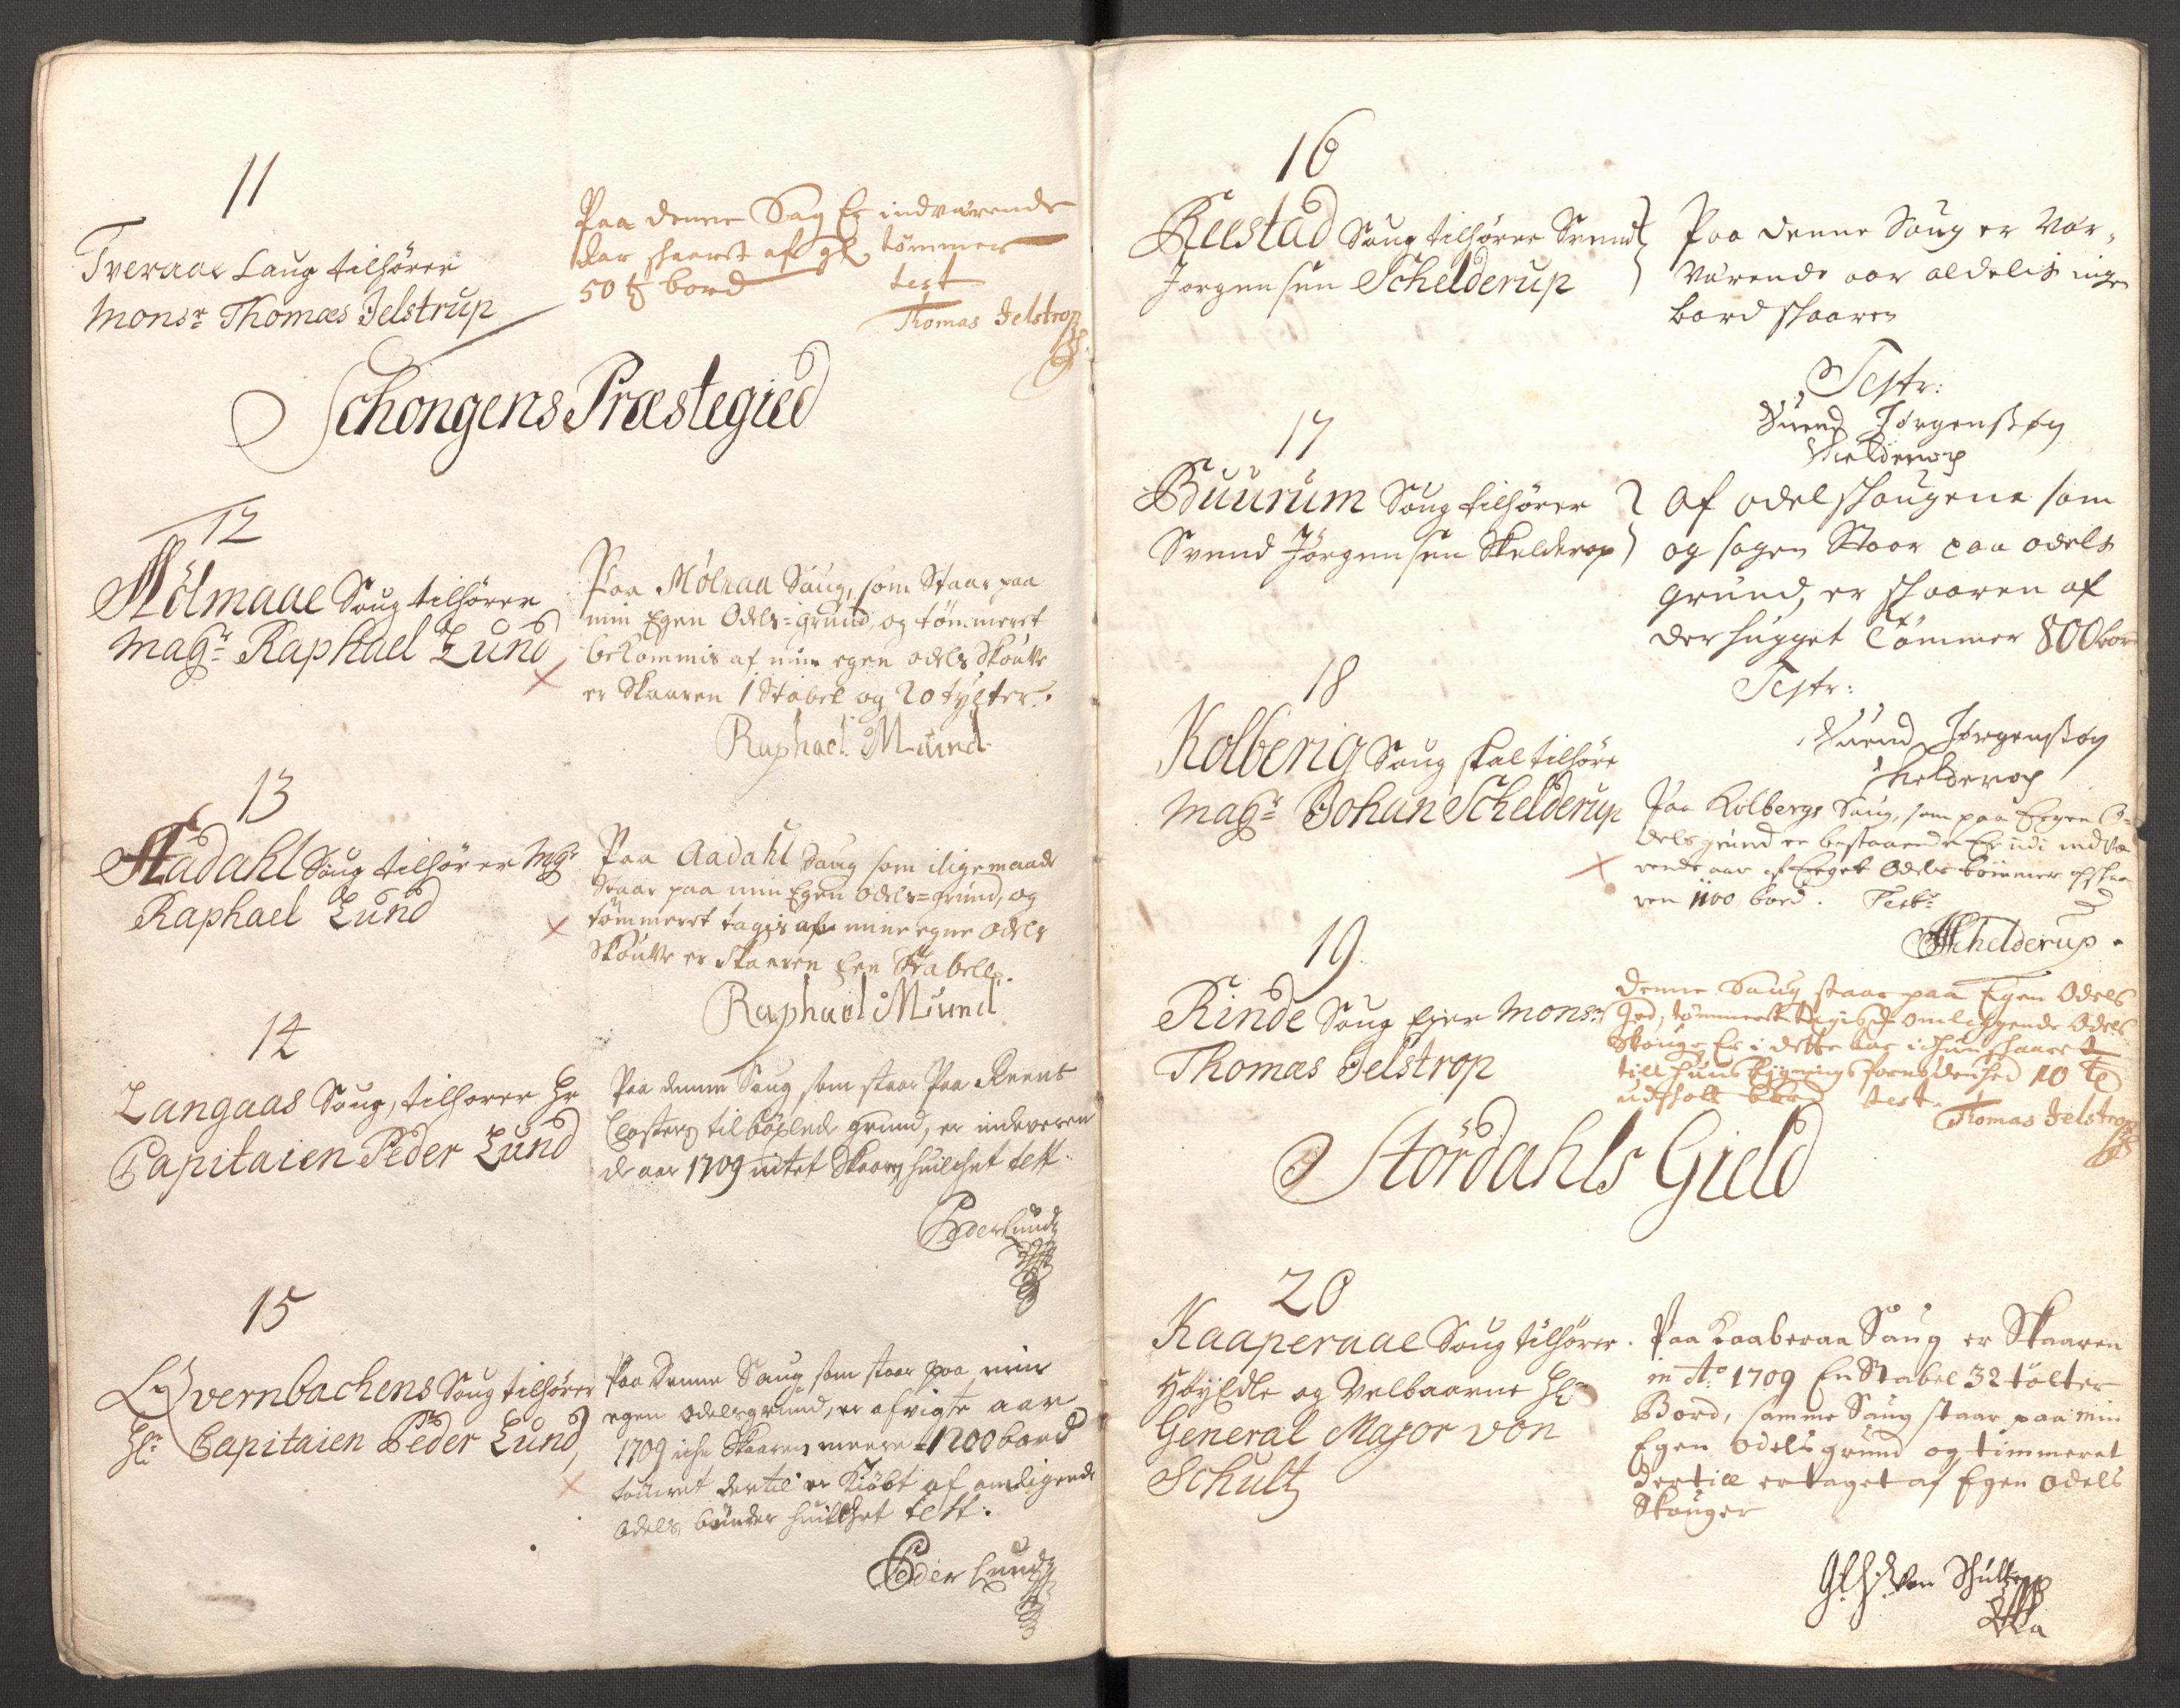 11
Tveraae Saug tilhører
Monsr Thomæs Jelstrup
Paa denne Sag Er indværende
Aar skaaret af gl. tømmer
50 t bord
test
Thomas Jelstrop
Schongens Præstegied
12
Mölmaae Saug tilhører
Magr Raphael Lund
Paa Mölnaa Saug, som Staar paa
min Egen Odels=grund, og tømmeret
bekommis af min egen odels Skouve
er Skaaren 1 Stabel og 20 tylter.
Raphael Mund
13
Aadahl Saug tilhører Mgr
Raphael Lund
Paa Aadahl Saug som iligemaade
Staar paa min Egen odels=grund, og
tømmeret tagis af mine egne odels
Skouve er Skaaren Een Stabell.
Raphael Mund
14
Langaas Saug, tilhører Hr
Capitaien Peder Lund
Paa denne Saug som staar Paa Reens
Closters tilböxlede grund, er indeveren
de aar 1709 intet Skaaren huilchet test.
Peder Lund
15
Qvernbachens Saug tilhører
Hr Capitaien Peder Lund
Paa Denne Saug som staar paa min
egen odelsgrund, er afvigte aar
1709 iche Skaaren meere 1200 bord
tømret dertil er Kiöbt af omligende
odels bönder huilchet test.
Peder Lund
16
Reestad Saug tilhører Svend
Jorgensen Schelderup
Paa denne Saug er Nær-
værende aar aldelis ingen
bord skaaren
Testr:
Svend Jørgensøn
Skelderop
17
Buurum Saug tilhører
Svend Jörgensen Skelderop
Af odelskougene som
og sagen Staar paa odels
grund, er skaaren af
der hugget Tömmer 800 bor
Testr:
Svend Jørgensøn
Skelderop
18
Kolberig Saug skal tilhøre
Magr Johan Schelderup
Paa Kolbergs Saug, som paa Eegen O=
dels grund er bestaaende Er udi indvæ
rende aar af Eeget Odels tömmer opskaa
ren 1100 bord. Testr
Schelderup.
19
Rinde Saug Ejer Monsr
Thomæs Jelstrop
Denne Saug staar paa Egen Odels
Jord, tømmeret tagis af omliggende Odels
Skouge, Er i dette Aar ichun skaaret
till huus bygnings fornødenhed 10 t
udskott bord test
Thomas Jelstrop
Stördahls Gield
20
Kaaperaae Saug tilhører
HöyEdle og Velbaarne Hr
General Major von
Schultz
Paa Kaaberaa Saug er Skaaren
in Ao 1709 En Stabel 32 tölter
Bord, samme Saug staar paa min
Egen odels grund og timmeret
dertill er taget af Egen odels
Skouger
von Schultz